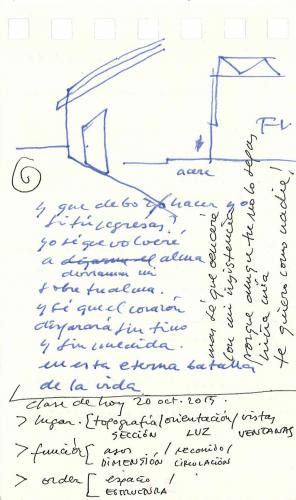 acere
6
y que debo yo hacer yo
si tú regresas?
yo sé que volveré
a alma
derrama mi
sobre tu alma.
y sé que el corazón
disparará sin tino
y sin medida.
en esta eterna batalla
de la vida
mas sé que venceré
con mi insistencia
porque aunque tu no lo sepas
niña mía
te quiero como nadie!
clase de hoy 20 oct. 2015.
> lugar. [topografía/orientación/vistas
SECCIÓN LUZ VENTANAS
> función [usos / recorrido/
DIMENSIÓN CIRCULACIÓN
> orden [espacio/
ESTRUCTURA